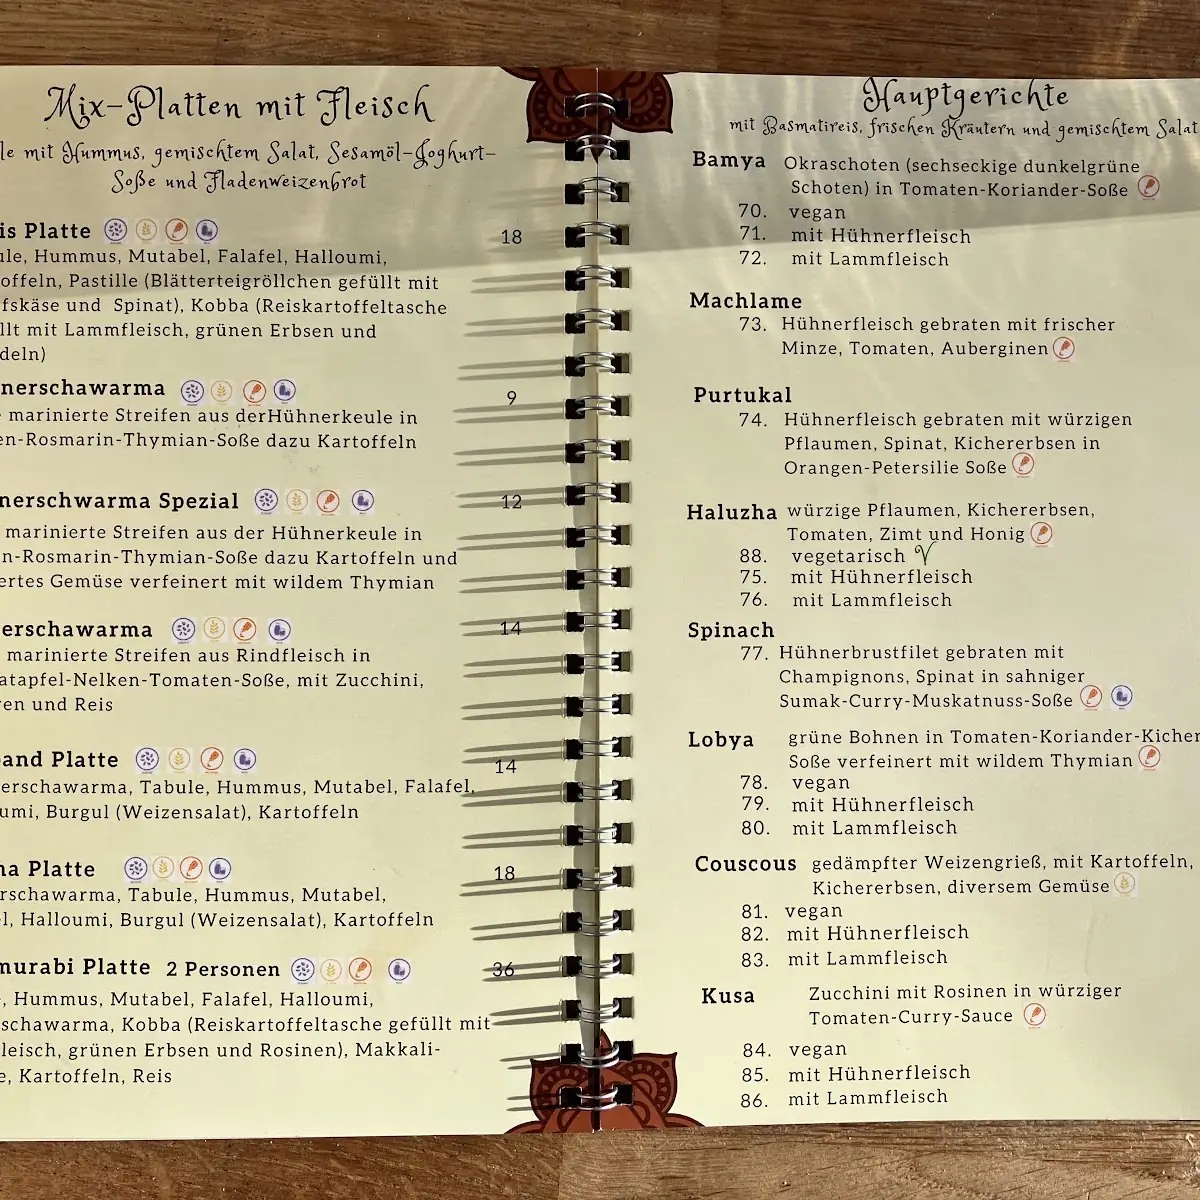 Mix-Platten mit Fleisch
le mit Hummus, gemischtem Salat, Sesamöl-Joghurt-
Soße und Fladenweizenbrot
is Platte 18
ule, Hummus, Mutabel, Falafel, Halloumi,
offeln, Pastille (Blätterteigröllchen gefüllt mit
fskäse und Spinat), Kobba (Reiskartoffeltasche
llt mit Lammfleisch, grünen Erbsen und
deln)
nerschawarma 9
marinierte Streifen aus derHühnerkeule in
en-Rosmarin-Thymian-Soße dazu Kartoffeln
nerschwarma Spezial 12
marinierte Streifen aus der Hühnerkeule in
n-Rosmarin-Thymian-Soße dazu Kartoffeln und
ertes Gemüse verfeinert mit wildem Thymian
erschawarma 14
marinierte Streifen aus Rindfleisch in
atapfel-Nelken-Tomaten-Soße, mit Zucchini,
ren und Reis
and Platte 14
erschawarma, Tabule, Hummus, Mutabel, Falafel,
umi, Burgul (Weizensalat), Kartoffeln
na Platte 18
rschawarma, Tabule, Hummus, Mutabel,
el, Halloumi, Burgul (Weizensalat), Kartoffeln
murabi Platte 2 Personen 36
, Hummus, Mutabel, Falafel, Halloumi,
schawarma, Kobba (Reiskartoffeltasche gefüllt mit
leisch, grünen Erbsen und Rosinen), Makkali-
e, Kartoffeln, Reis
Hauptgerichte
mit Basmatireis, frischen Kräutern und gemischtem Salat
Bamya Okraschoten (sechseckige dunkelgrüne
Schoten) in Tomaten-Koriander-Soße
70. vegan
71. mit Hühnerfleisch
72. mit Lammfleisch
Machlame
73. Hühnerfleisch gebraten mit frischer
Minze, Tomaten, Auberginen
Purtukal
74. Hühnerfleisch gebraten mit würzigen
Pflaumen, Spinat, Kichererbsen in
Orangen-Petersilie Soße
Haluzha würzige Pflaumen, Kichererbsen,
Tomaten, Zimt und Honig
88. vegetarisch V
75. mit Hühnerfleisch
76. mit Lammfleisch
Spinach
77. Hühnerbrustfilet gebraten mit
Champignons, Spinat in sahniger
Sumak-Curry-Muskatnuss-Soße
Lobya grüne Bohnen in Tomaten-Koriander-Kicher
Soße verfeinert mit wildem Thymian
78. vegan
79. mit Hühnerfleisch
80. mit Lammfleisch
Couscous gedämpfter Weizengrieß, mit Kartoffeln,
Kichererbsen, diversem Gemüse
81. vegan
82. mit Hühnerfleisch
83. mit Lammfleisch
Kusa Zucchini mit Rosinen in würziger
Tomaten-Curry-Sauce
84. vegan
85. mit Hühnerfleisch
86. mit Lammfleisch